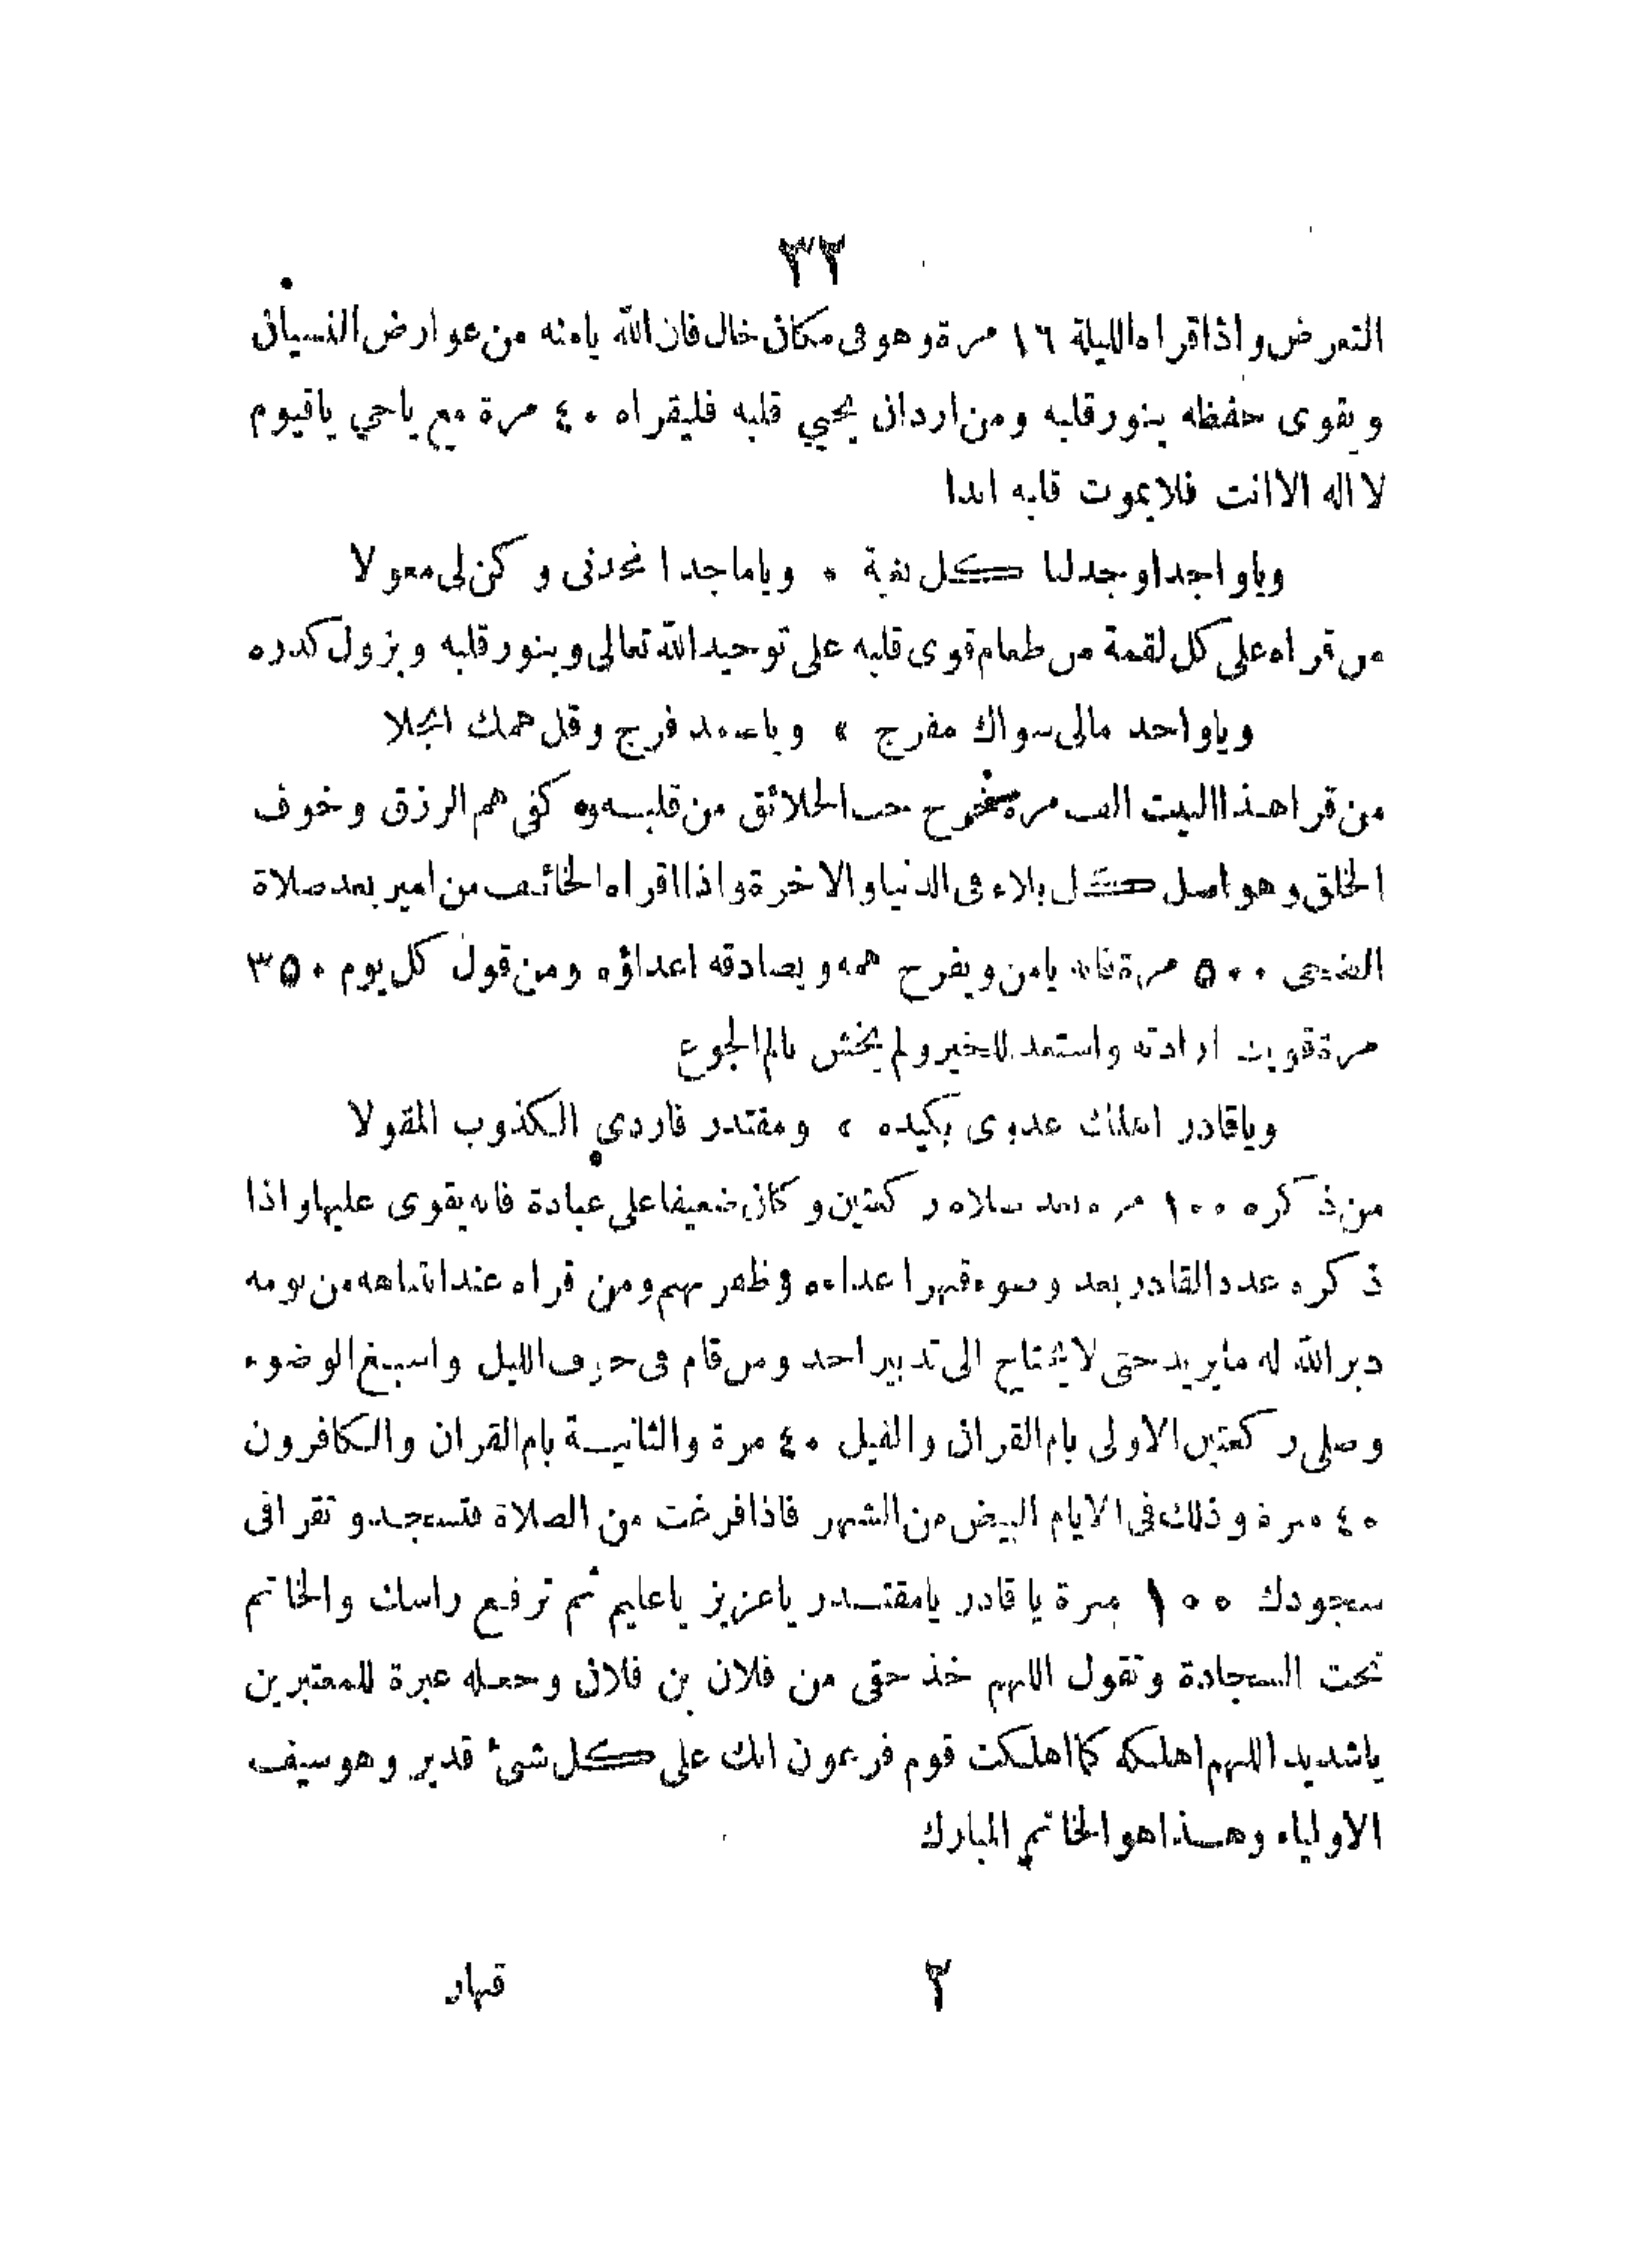 ٣٣
التعرض واذا قراه الليلة ١٦ مرة وهو فى مكان خال فان الله يامنه من عوارض النسيان
ويقوى حفظه ينور قلبه ومن اراد ان يحيي قلبه فليقراه ٤٠ مرة مع ياحي ياقيوم
لا اله الا انت فلا يموت قلبه ابدا
وياواجد اوجد لنا كل بغية • وياماجد امجدنى وكن لى معولا
من قراه على كل لقمة من طعام قوى قلبه على توحيد الله تعالى وينور قلبه ويزول كدره
وياواحد مالى سواك مفرج » وياصمد فرج وقل همك انجلا
من قرا هذا البيت الف مرة حب الخلائق من قلبه كفى هم الرزق وخوف
الخلق وهو اصل كل بلاء فى الدنيا والاخرة واذا اقراه الخائف من امير بعد صلاة
الضحى ٥٠٠ مرة فانه يامن ويفرح همه ويصادقه اعداؤه ومن قول كل يوم ٣٥٠
مرة قويت ارادته واستعد للخير ولم يخش بالم الجوع
وياقادر اهلك عدوى بكيده ، ومقتدر فاردي الكذوب المقولا
من ذكره ١٠٠ مره بعد صلاه ركعتين وكان ضعيفا على عبادة فانه يقوى عليها واذا
ذكره عدد القادر بعد وضوء قهر اعداءه وظفر بهم ومن قراه عند انتباهه من نومه
دبر الله له مايريد حتى لا يحتاج الى تدبير احد ومن قام فى جوف الليل واسبغ الوضوء
وصلى ركعتين الاولى بام القران والفيل ٤٠ مرة والثانية بام القران والكافرون
٤٠ مرة وذلك فى الايام البيض من الشهر فاذا فرغت من الصلاة فتسجد وتقرا فى
سجودك ١٠٠ مرة ياقادر يامقتدر ياعزيز ياعليم ثم ترفع راسك والخاتم
تحت السجادة وتقول اللهم خذ حقى من فلان بن فلان وجعله عبرة للمعتبرين
ياشديد اللهم اهلكه كما اهلكت قوم فرعون انك على كل شئ قدير وهو سيف
الاولياء وهذا هو الخاتم المبارك
٣ قهار